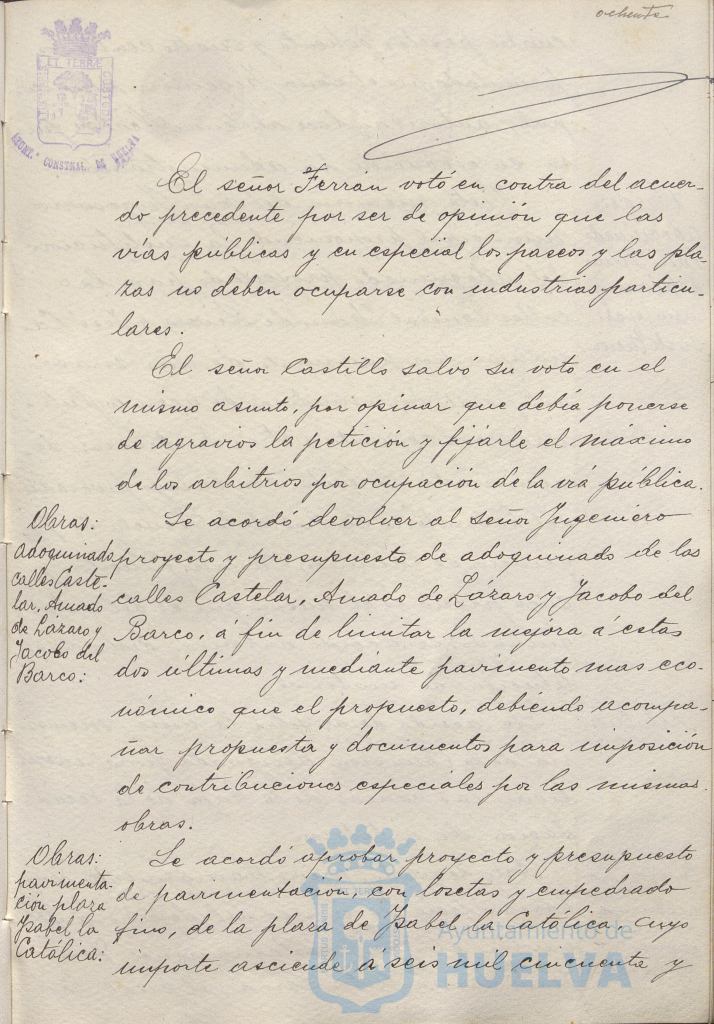 ochenta
ET TERRÆ
AYUNT. CONSTNAL. DE HUELVA
El señor Ferrán votó en contra del acuer-
do precedente por ser de opinión que las
vías públicas y en especial los paseos y las pla-
zas no deben ocuparse con industrias particu-
lares.
El señor Castillo salvó su voto en el
mismo asunto, por opinar que debía ponerse
de agravios la petición y fijárle el máximo
de los arbitrios por ocupación de la viá pública.
Obras:
adoquinado
calles Caste-
lar, Amado
de Lázaro y
Jacobo del
Barco:
Se acordó devolver al señor Ingeniero
proyecto y presupuesto de adoquinado de las
calles Castelar, Amado de Lázaro y Jacobo del
Barco, á fin de limitar la mejora á estas
dos últimas y mediante pavimento mas eco-
nómico que el propuesto, debiendo acompa-
ñar propuesta y documentos para imposición
de contribuciones especiales por las mismas
obras.
Obras:
pavimenta-
ción plaza
Isabel la
Católica:
Se acordó aprobar proyecto y presupuesto
de pavimentación, con losetas y empedrado
fino, de la plaza de Isabel la Católica, cuyo
importe asciende á seis mil cincuenta y
Ayuntamiento de
HUELVA